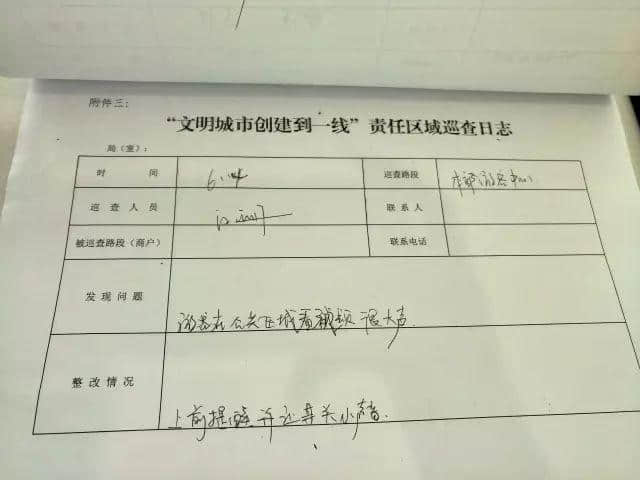 附件三：
“文明城市创建到一线”责任区域巡查日志
局（室）：
时 间 6.14 巡查路段
巡查人员 联系人
被巡查路段（商户） 联系电话
发现问题 游客在公共区域看视频 很大声.
整改情况 上前提醒并让其关小声音.